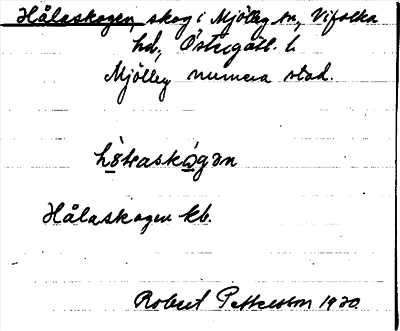 Hålaskogen, skog i Mjölby sn, Vifolka
hd, Östergötl. l.
Mjölby numera stad.
Hålaskogen kb.
Robert Pettersson 1930